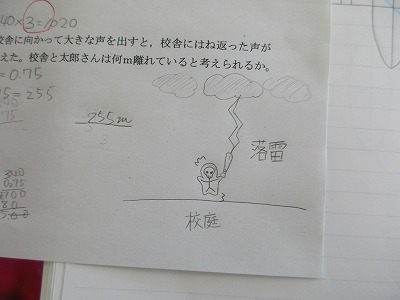 40×3=1020
校舎に向かって大きな声を出すと，校舎にはね返った声が
えた。校舎と太郎さんは何m離れていると考えられるか。
= 0.75
5 = 255
255m
落雷
校庭